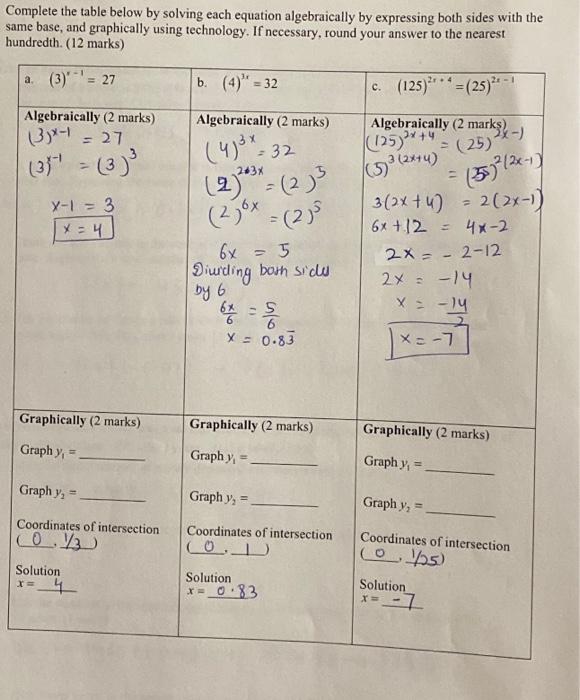 Complete the table below by solving each equation algebraically by expressing both sides with the
same base, and graphically using technology. If necessary, round your answer to the nearest
hundredth. (12 marks)
a. (3)^{x-1} = 27
Algebraically (2 marks)
(3)^{x-1} = 27
(3)^{x-1} = (3)^3
x-1 = 3
x = 4
Graphically (2 marks)
Graph y₁ = ______
Graph y₂ = ______
Coordinates of intersection
(0, 1/3)
Solution
x = 4
b. (4)^{3x} = 32
Algebraically (2 marks)
(4)^{3x} = 32
(2)^{2*3x} = (2)^5
(2)^{6x} = (2)^5
6x = 5
Diving both sides
by 6
6x/6 = 5/6
x = 0.83̅
Graphically (2 marks)
Graph y₁ = ______
Graph y₂ = ______
Coordinates of intersection
(0, 1)
Solution
x = 0.83
c. (125)^{2x+4} = (25)^{2x-1}
Algebraically (2 marks)
(125)^{2x+4} = (25)^{2x-1}
(5)^{3(2x+4)} = (5)^{2(2x-1)}
3(2x+4) = 2(2x-1)
6x+12 = 4x-2
2x = -2-12
2x = -14
x = -14/2
x = -7
Graphically (2 marks)
Graph y₁ = ______
Graph y₂ = ______
Coordinates of intersection
(0, 1/25)
Solution
x = -7